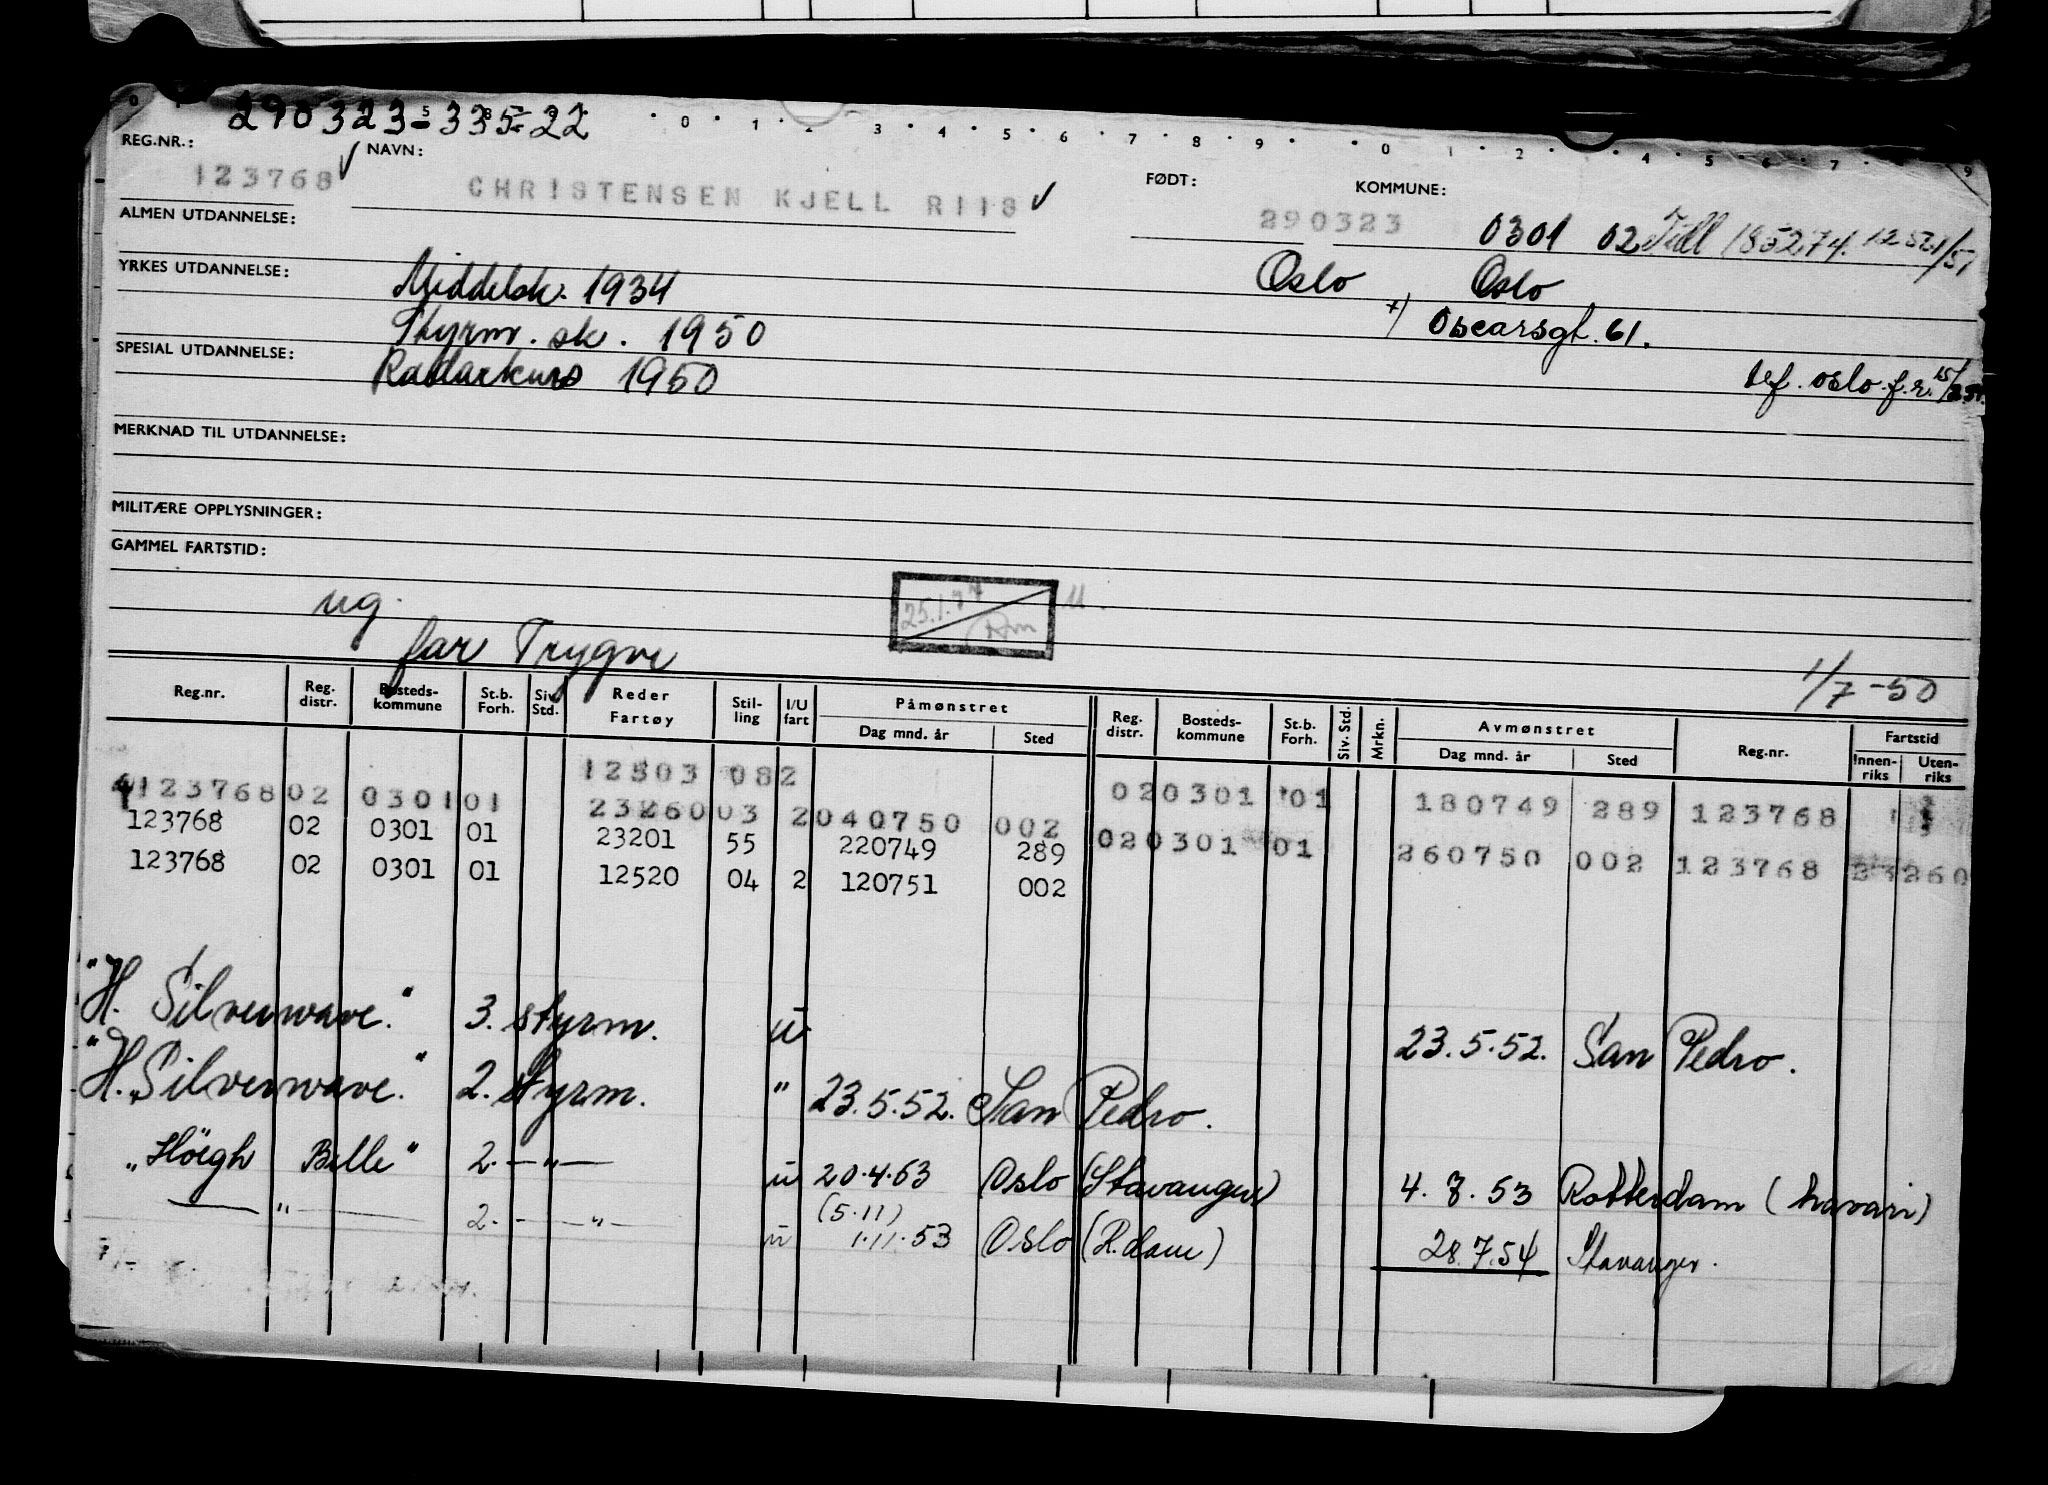 290323-33522
REG.NR.: NAVN: FØDT: KOMMUNE:
123768 ✓ CHRISTENSEN KJELL RIIS ✓ 290323 0301 02
ALMEN UTDANNELSE:
Middelsk. 1934 Oslo Oslo
YRKES UTDANNELSE:
Styrm. sk. 1950 +) Oscarsgt. 61.
SPESIAL UTDANNELSE:
Radarkurs 1950
MERKNAD TIL UTDANNELSE:
MILITÆRE OPPLYSNINGER:
GAMMEL FARTSTID:
ug.
far Trygve
1/7-50
Reg.nr. Reg. distr. Bosteds- kommune St.b. Forh. Siv. Std. Reder Fartøy Stil- ling I/U fart Påmønstret Dag mnd. år Sted Reg. distr. Bosteds- kommune St.b. Forh. Siv. Std. Mrkn. Avmønstret Dag mnd. år Sted Reg.nr. Fartstid Innen- riks Uten- riks
12503 082
123768 02 0301 01 23260 03 2 040750 002 02 0301 01 180749 289 123768
123768 02 0301 01 23201 55 220749 289 02 0301 01 260750 002 123768 23260
123768 02 0301 01 12520 04 2 120751 002
"H. Silverwave." 3. styrm. u 23.5.52. San Pedro.
"H. Silverwave." 2. styrm. " 23.5.52. San Pedro.
"Höegh Belle" 2. —"— u 20.4.53 Oslo (Stavanger) 4.7.53 Rotterdam (havari)
—"— 2. —"— u (5.11) 1.11.53 Oslo (R.dam) 28.7.54 Stavanger.